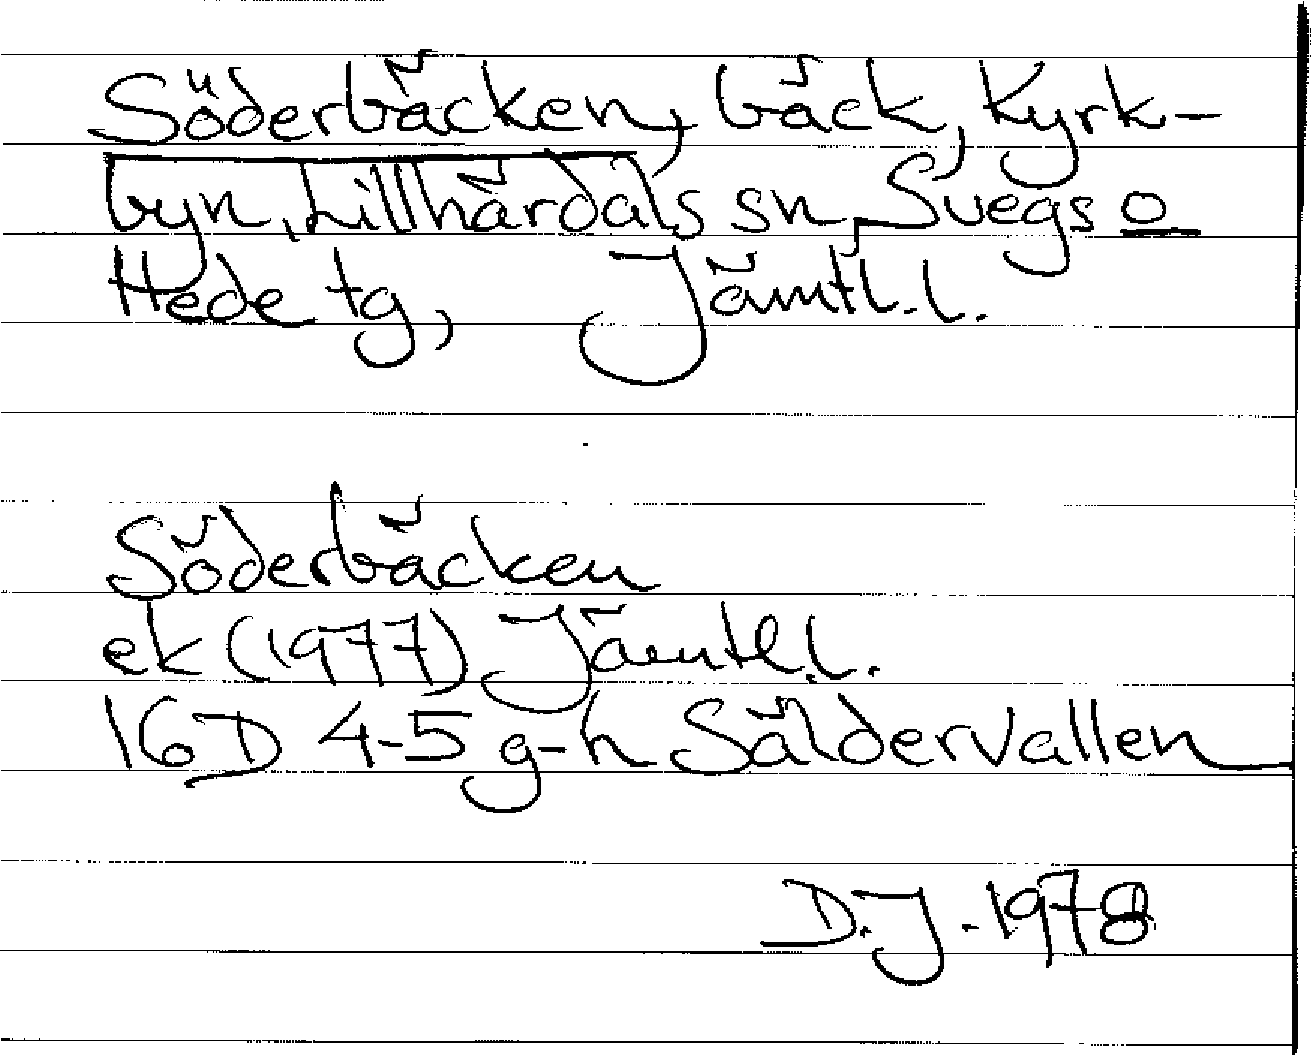 Söderbäcken, bäck, Kyrk-
byn, Lillhärdals sn, Svegs o
Hede tg, Jämtl. l.
Söderbäcken
ek (1977) Jämtl. l.
16D 4-5 g-h Säldervallen
D.J. 1978